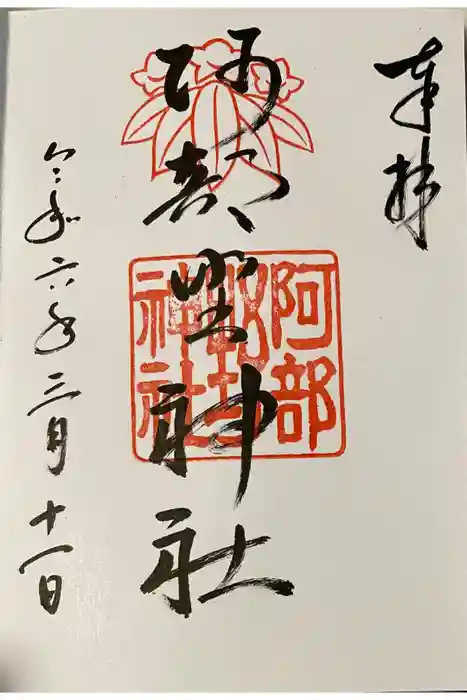 奉拝
阿部埜神社
阿部
埜
神社
令和六年三月十一日